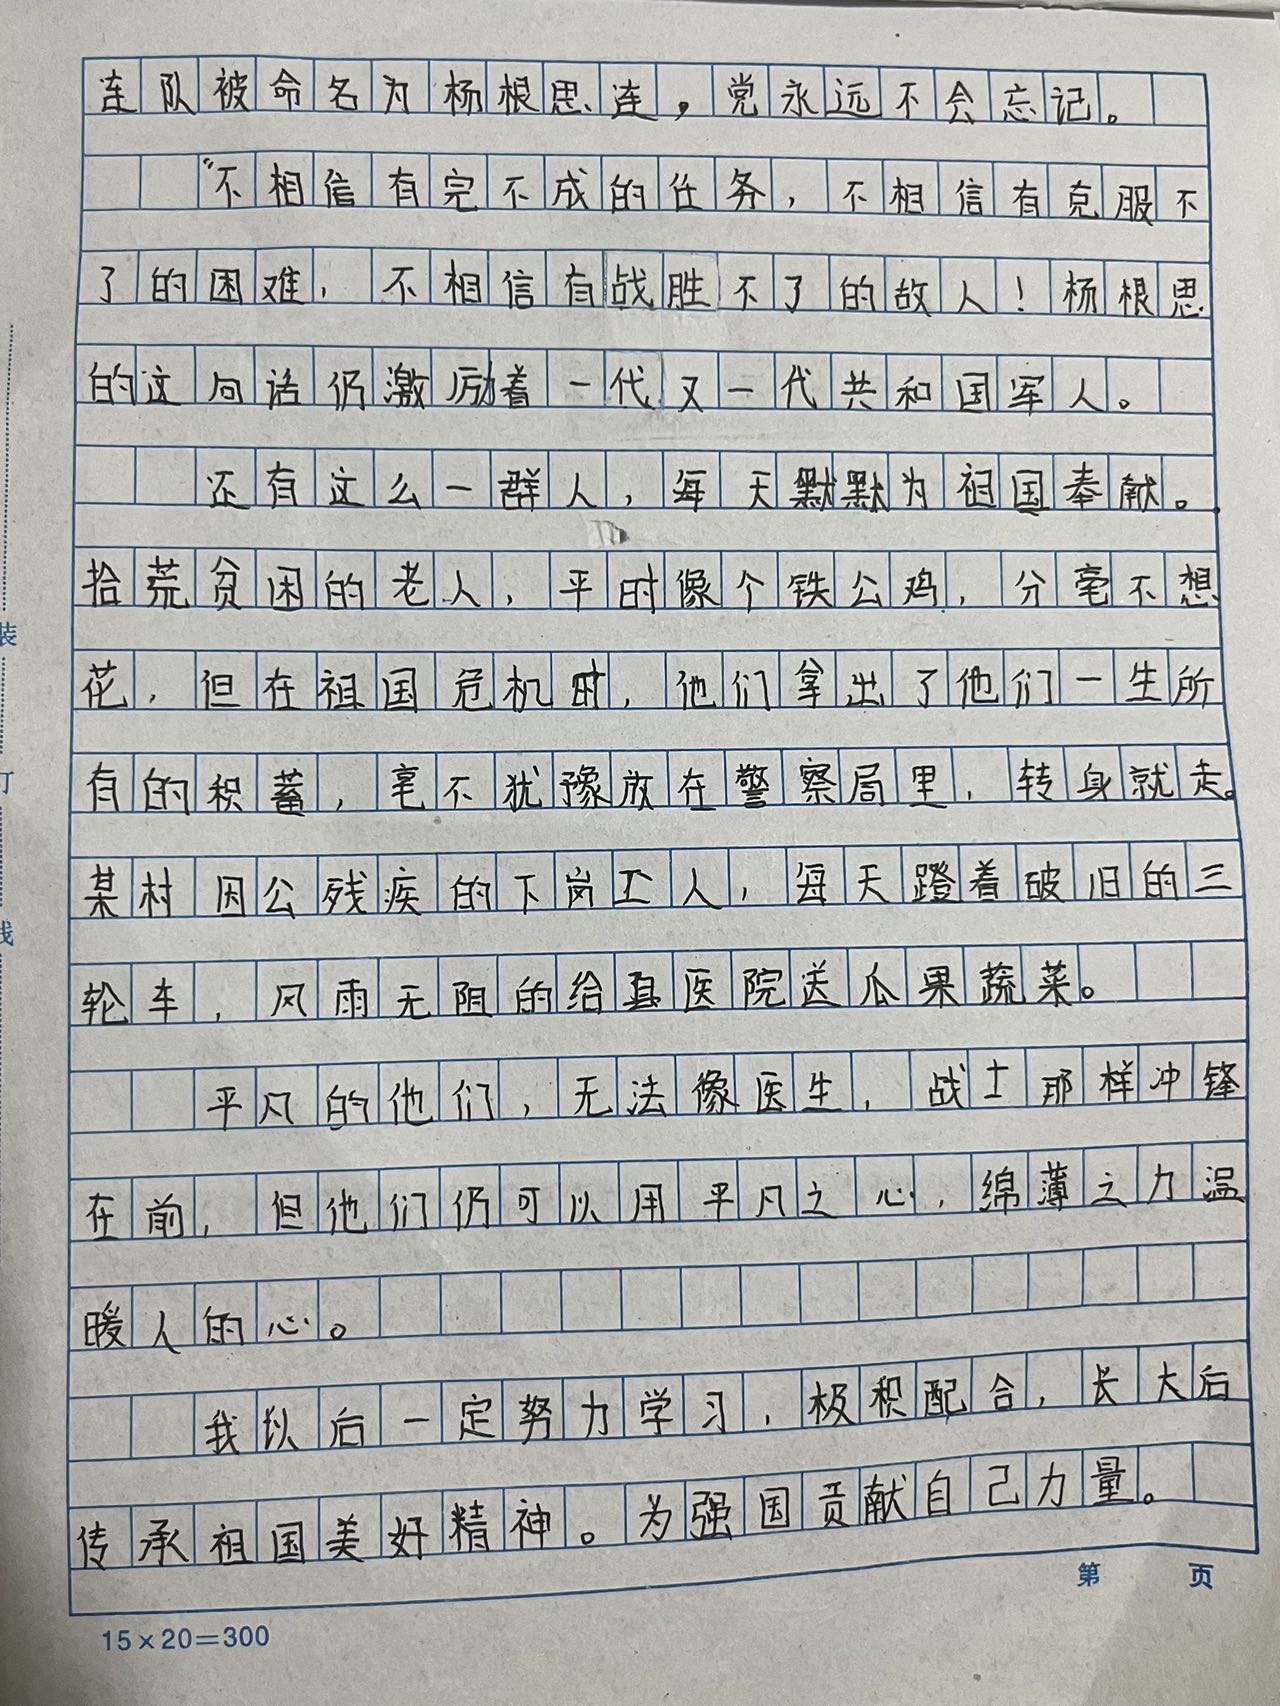 连队被命名为杨根思连，党永远不会忘记。
“不相信有完不成的任务，不相信有克服不
了的困难，不相信有战胜不了的敌人！杨根思
的这句话仍激励着一代又一代共和国军人。
还有这么一群人，每天默默为祖国奉献。
拾荒贫困的老人，平时像个铁公鸡，分毫不想
花，但在祖国危机时，他们拿出了他们一生所
有的积蓄，毫不犹豫放在警察局里，转身就走。
某村因公残疾的下岗工人，每天蹬着破旧的三
轮车，风雨无阻的给县医院送瓜果蔬菜。
平凡的他们，无法像医生，战士那样冲锋
在前，但他们仍可以用平凡之心，绵薄之力温
暖人的心。
我以后一定努力学习，极积配合，长大后
传承祖国美好精神。为强国贡献自己力量。
第 页
15×20=300
装
订
线